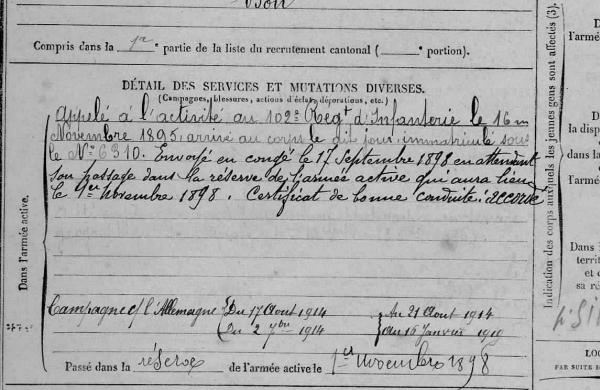 Bon
Compris dans la 1re partie de la liste du recrutement cantonal ( portion).
DÉTAIL DES SERVICES ET MUTATIONS DIVERSES.
(Campagnes, blessures, actions d'éclat, déporations, etc.)
Appelé à l'activité au 102e Regt d'Infanterie le 16
Novembre 1895, arrivé au corps le dit jour, immatriculé sous
le No 6310. Envoyé en congé le 17 Septembre 1898 en attendant
son passage dans la réserve de l'armée active qui aura lieu
le 1er novembre 1898. Certificat de bonne conduite: accordé
Dans l'armée active.
Campagne c/ l'Allemagne { Du 17 Aout 1914 } Au 21 Aout 1914
Du 2 7bre 1914 } Au 16 Janvier 1919
Passé dans la réserve de l'armée active le 1er novembre 1898
Indication des corps auxquels les jeunes gens sont affectés (3).
D
l'armée
D
la disp
dans la
l'armée
Dans l
territ
et c
sa ré
LOC
PAR SUITE D